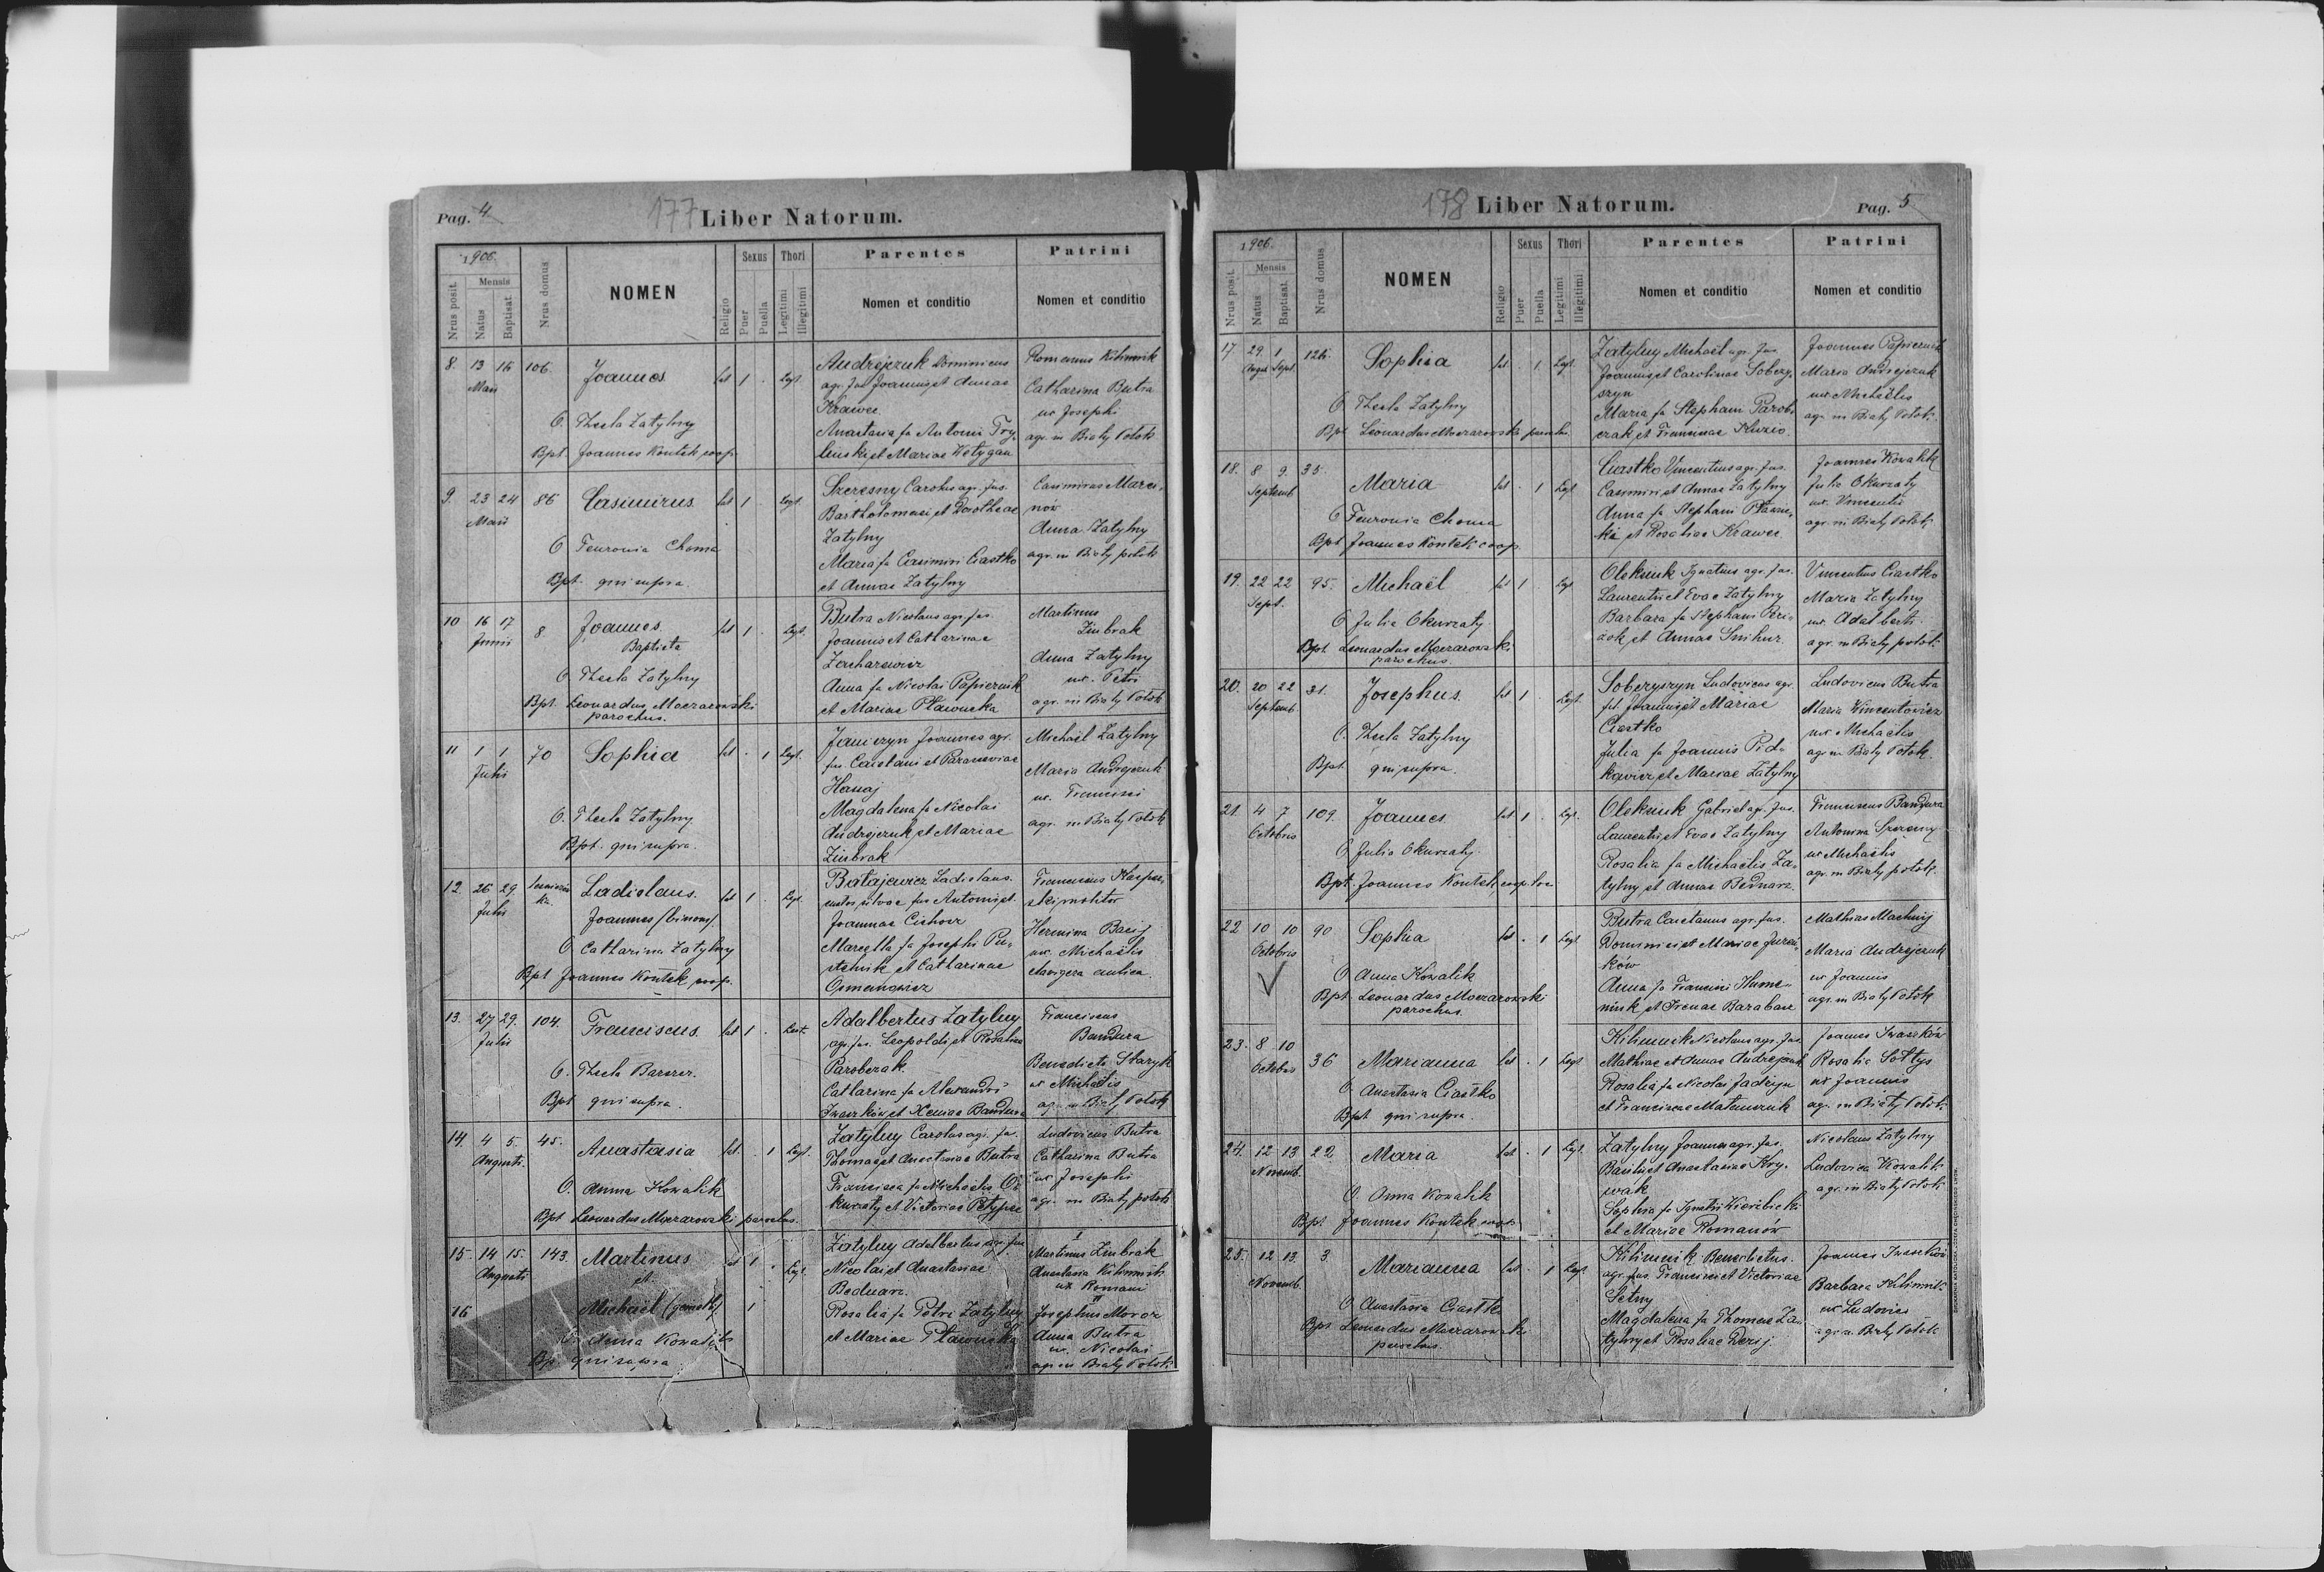 Pag. 4
177 Liber Natorum.
1906.
Nrus posit.
Mensis
Natus
Baptisat.
Nrus domus
NOMEN
Religio
Sexus
Puer
Puella
Thori
Legitimi
Illegitimi
Parentes
Nomen et conditio
Patrini
Nomen et conditio
8. 13 16 106. Joannes lat 1 . Legt.
Maii
O. Thecla Zatylny
Bpt. Joannes Kontek coop.
Andrejczuk Dominicus
agr. fus Joannis et Annae
Krawec
Anastasia fa Antonii Try-
luski et Mariae Kotygan
Romanus Kilimnik
Catharina Butra
ux Josephi
agr. in Biały Potok
9 23 24 86 Casimirus lat 1 . Legt.
Maii
O Feuronia Choma
Bpt. qui supra.
Szczesny Carolus agr. fus.
Bartholomaei et Dorotheae
Zatylny
Maria fa Casimiri Ciastko
et Annae Zatylny
Casimirus Marci-
nów
Anna Zatylny
agr. in Biały potok
10 16 17 8. Joannes lat 1 . Legt.
Junii
Baptista
O. Thecla Zatylny
Bpt. Leonardus Moczarowski
parochus.
Butra Nicolaus agr. fus.
Joannis et Catharinae
Zacharewicz
Anna fa Nicolai Papiernik
et Mariae Pławucka
Martinus
Zinbrak
Anna Zatylny
ux. Petri
agr. in Biały Potok
11 1 1 70 Sophia lat . 1 Legt.
Julii
O. Thecla Zatylny
Bpt. qui supra.
Janiczyn Joannes agr.
fus. Caietani et Paraseviae
Hanaj
Magdalena fa Nicolai
Andrejczuk et Mariae
Zinbrak
Michaël Zatylny
Maria Andrejczuk
ux. Francisci
agr. in Biały Potok
12 26 29 Ladislaus lat 1 . Legt.
Julii
Joannes /binom/.
O Catharina Zatylny
Bpt Joannes Kontek coop.
Batajewicz Ladislaus
custos silvae fus Antonii et
Joannae Cichosz
Marcella fa Josephi Pu-
stelnik et Catharinae
Osmanowicz
Franciscus Karpin-
ski molitor
Hermina Basij
ux. Michaëlis
clavigera aulica.
13. 27 29. 104. Franciscus. lat 1 .
Julii
O. Thecla Barszcz.
Bpt qui supra.
Adalbertus Zatylny
agr. fus. Leopoldi et Rosaliae
Paroberak.
Catharina fa Alexandri
Iwaszków et Xeniae Bandura
Franciscus
Bandura
Benedicta Staryk
ux Michaëlis
agr. in Biały Potok
14. 4 5. 45. Anastasia lat. . 1 Legt.
Augusti.
O. Anna Kowalik
Bpt Leonardus Moczarowski parochus.
Zatylny Carolus agr. fus.
Thomae et Anastasiae Butra
Francisca fa Michaëlis O-
kurzaty et Victoriae Petypac
Ludovicus Butra
Catharina Butra
ux Josephi
agr. in Biały potok
15. 14 15. 143. Martinus lat 1 . Legt.
Augusti
et
16 Michaël (gemelli) 1
O Anna Kowalik
Bp. qui supra.
Zatylny Adalbertus agr. fus
Nicolai et Anastasiae
Bednarz.
Rosalia fa Petri Zatylny
et Mariae Pławucka
I
Martinus Zinbrak
Anastasia Kilimnik
ux Romani
II
Josephus Moroz
Anna Butra
ux. Nicolai
agr. in Biały Potok.
178 Liber Natorum. Pag. 5
1906.
Nrus posit.
Mensis
Natus
Baptisat.
Nrus domus
NOMEN
Religio
Sexus
Puer
Puella
Thori
Legitimi
Illegitimi
Parentes
Nomen et conditio
Patrini
Nomen et conditio
17. 29. 1 Sophia lat . 1 Legt.
August Sept.
O. Thecla Zatylny
Bpt Leonardus Moczarowski parochus.
Zatylny Michaël agr. fus
Joannis et Carolinae Sobczy-
szyn
Maria fa Stephani Parob-
czak et Franciscae Kuzio.
Joannes Papiernik
Maria Andrejczuk
ux. Michaëlis
agr. in Biały Potok.
18. 8 9. 35. Maria lat . 1 Legt
Septemb.
O Feuronia Choma
Bpt Joannes Kontek coop.
Ciastko Vincentius agr. fus.
Casimiri et Annae Zatylny
Anna fa Stephani Pławuc-
ki et Rosaliae Krawec
Joannes Kowalik
Julia Okurzaty
ux. Vincentii
agr. in Biały Potok
19. 22 22 95. Michaël lat 1 . Legt
Sept.
O Julia Okurzaty.
Bpt. Leonardus Moczarowski
parochus.
Oleksiuk Ignatius agr. fus.
Laurentii et Evae Zatylny
Barbara fa Stephani
et Annae Snihur.
Vincentius Ciastko
Maria Zatylny
ux. Adalberti
agr. in Biały potok.
20. 20 22 31. Josephus. lat 1 . Legt.
Septemb.
O. Thecla Zatylny
Bpt. qui supra.
Sobczyszyn Ludovicus agr.
fil. Joannis et Mariae
Ciastko
Julia fa Joannis
et Mariae Zatylny
Ludovicus Butra
Maria Wincentowicz
ux. Michaëlis
agr. in Biały Potok.
21. 4 7 109. Joannes lat 1 . Legt.
Octobris
O Julia Okurzaty.
Bpt. Joannes Kontek
Oleksiuk Gabriel agr. fus.
Laurentii et Evae Zatylny
Rosalia fa Michaëlis Za-
tylny et Annae Bednarz.
Franciscus Bandura
Antonina Szczesny
ux Michaëlis
agr. in Biały potok.
22 10 10 90 Sophia lat . 1 Legt.
Octobris
O Anna Kowalik
Bpt Leonardus Moczarowski
parochus.
Butra Caietanus agr. fus.
Dominici et Mariae
ków
Anna fa Francisci Hume-
niuk et Irenae Barabasz
Mathias Machnij
Maria Andrejczuk
ux Joannis
agr. in Biały Potok
23. 8 10 36 Marianna lat . 1 Legt
Octobris
O. Anastasia Ciastko
Bpt. qui supra.
Kilimnik Nicolaus agr. fus.
Mathiae et Annae Andrejczuk
Rosalia fa Nicolai Jadczyn
et Franciscae Matenczuk
Joannes Iwaszków
Rosalia Sołtys
ux Joannis
agr. in Biały Potok.
24. 12 13 22. Maria lat . 1 Legt.
Novemb.
O. Anna Kowalik
Bpt Joannes Kontek coop.
Zatylny Joannes agr. fus.
Basilii et Anastasiae Kry-
wak
Sophia fa Ignatii Wierzbicki
et Mariae Romanów
Nicolaus Zatylny
Ludovica Kowalik
agr. in Biały Potok
25. 12 13. 3 Marianna lat . 1 Legt.
Novemb.
O Anastasia Ciastko
Bpt. Leonardus Moczarowski
parochus.
Kilimnik Benedictus.
agr. fus. Francisci et Victoriae
Setny
Magdalena fa Thomae Za-
tylny et Rosaliae Dersj.
Joannes Iwaszków
Barbara Kilimnik
ux Ludovici
agr. in Biały Potok